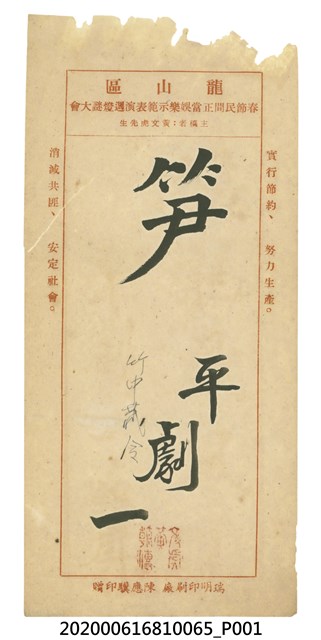 區山龍
會大謎燈選演表範示樂娛當正間民節春
生先虎文黃：者稿主
實行節約、努力生產。
消滅共匪、安定社會。
笋
平劇一
竹中藏令
贈印驥應陳 廠刷印明瑞
202000616810065_P001